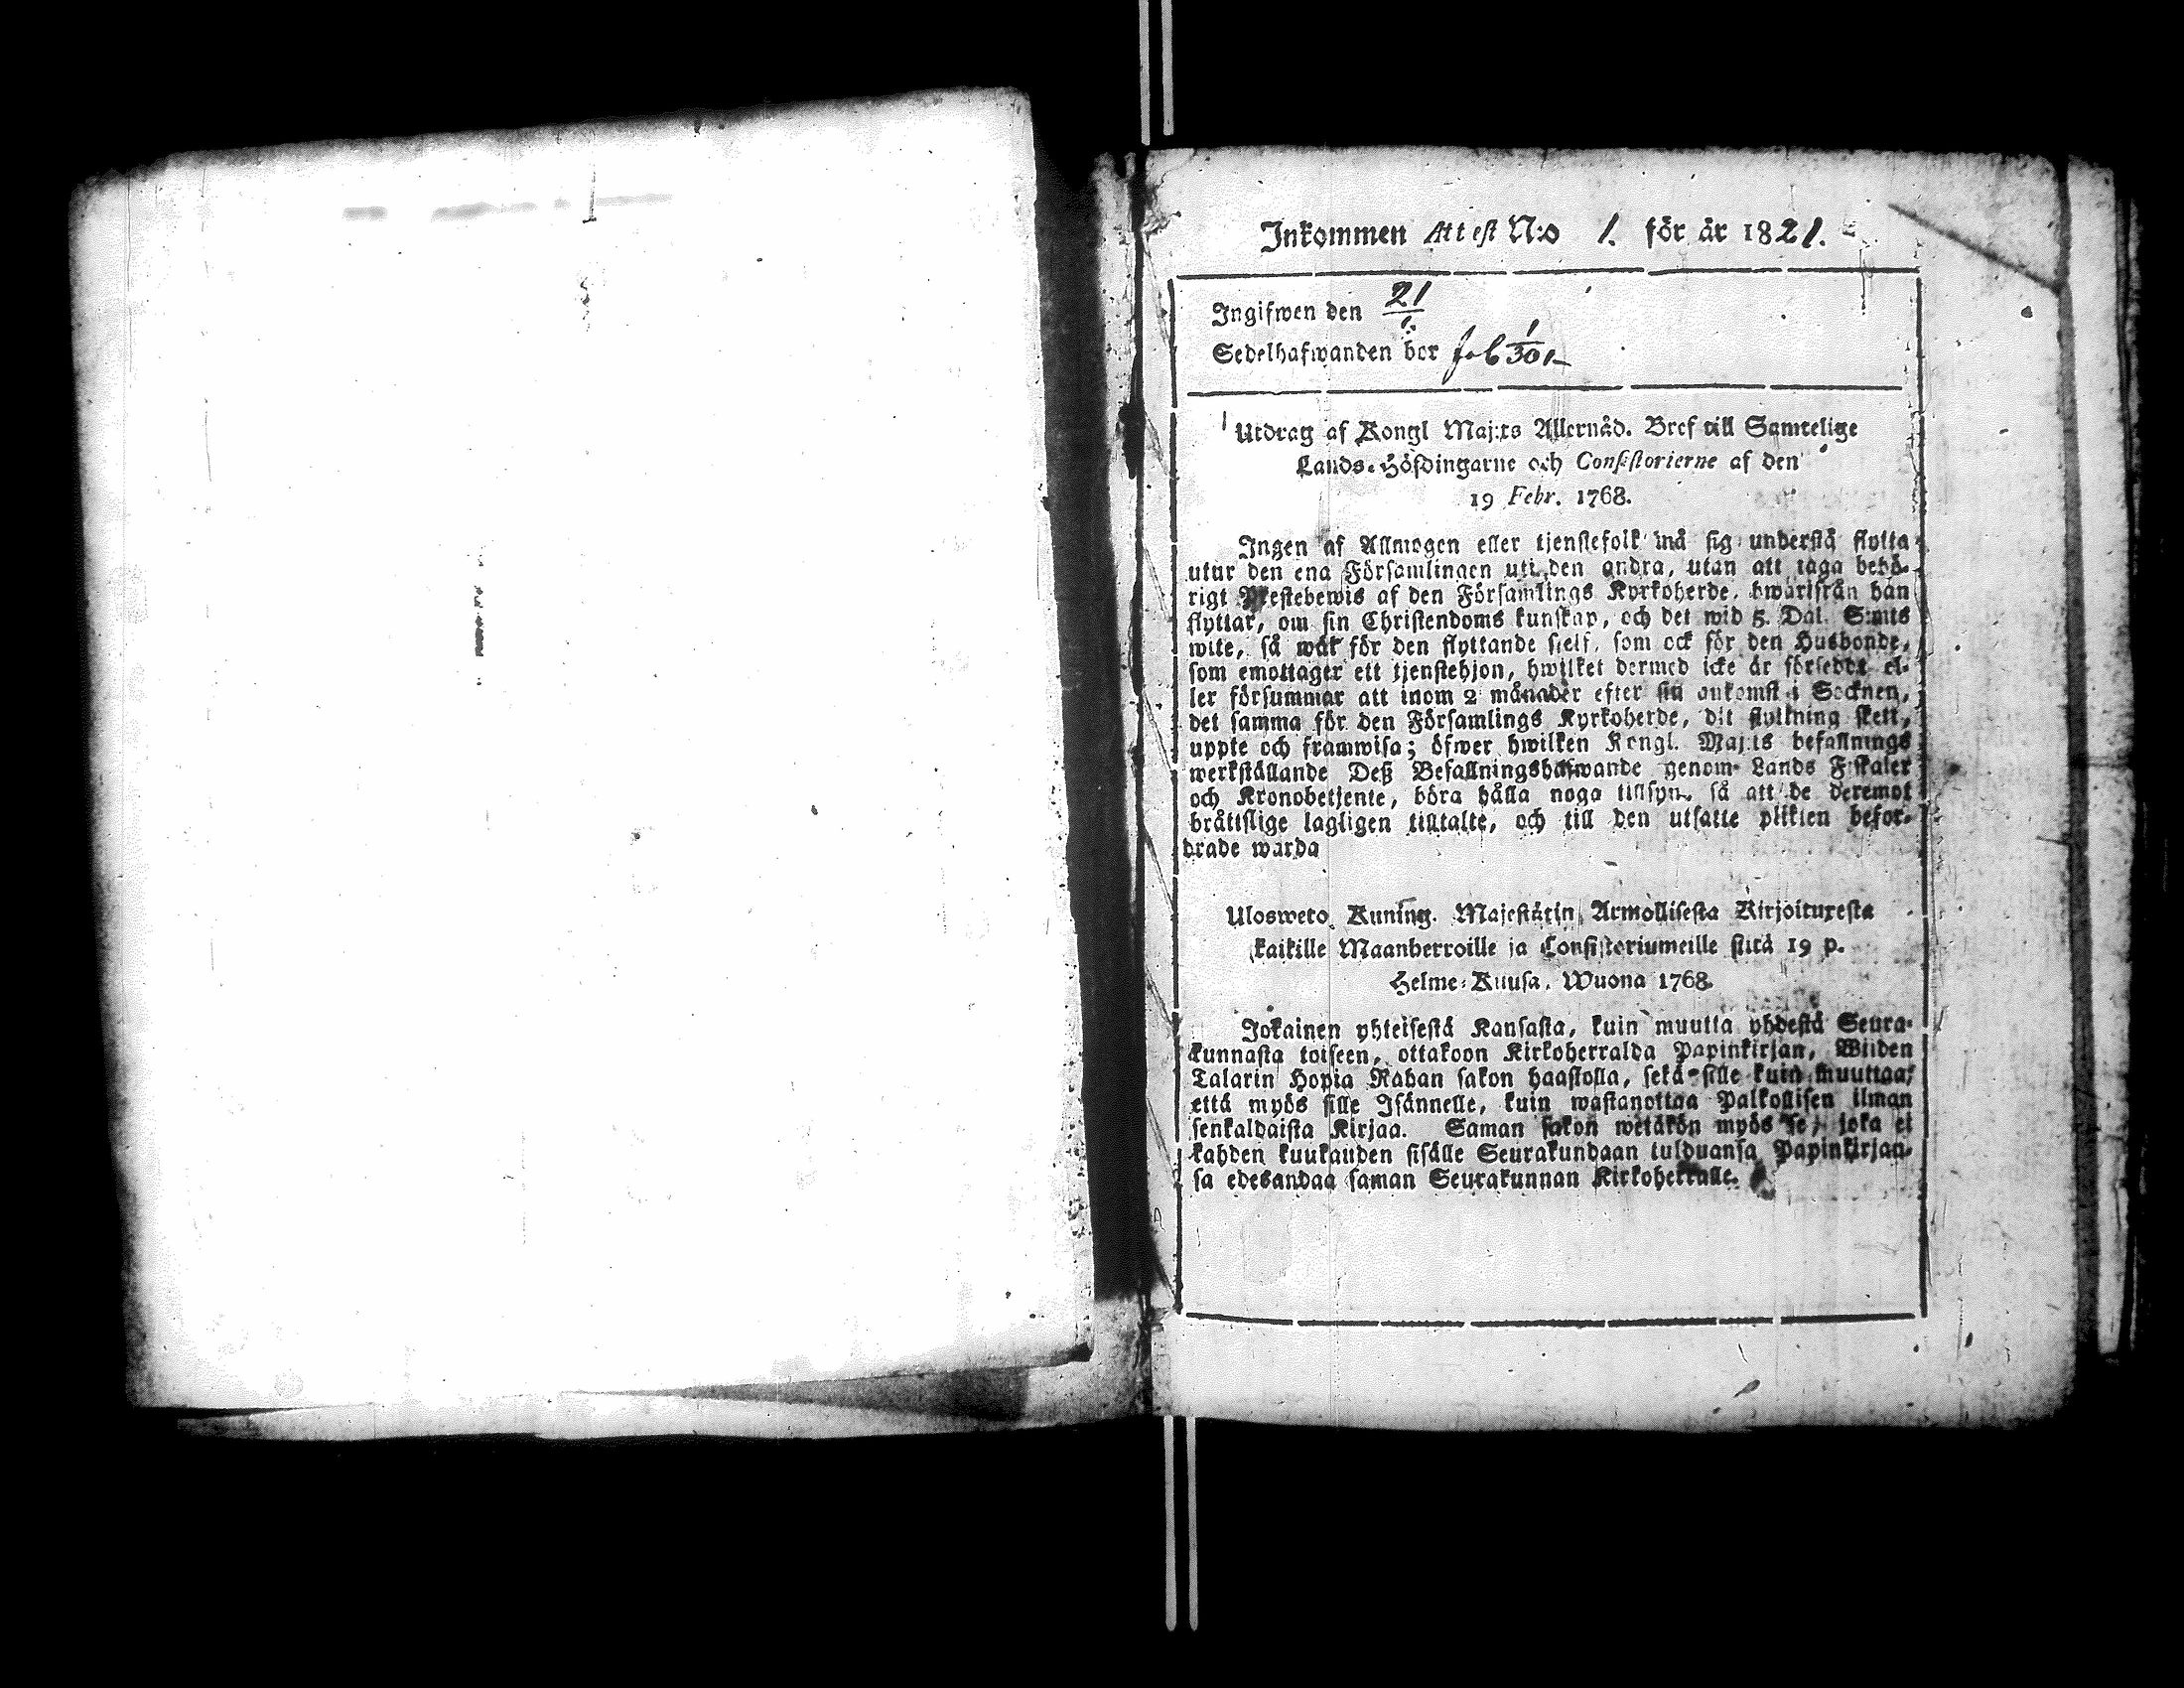 Inkommen Attest N:o 1. för år 1821.
Ingifwen den 21/1.
Sedelhafwanden bor
Utdrag af Kongl Maj:ts Allernåd. Bref till Samtelige
Lands-Höfdingarne och Consistorierne af den
19 Febr. 1768.
Ingen af Allmogen eller tjenstefolk må sig understå flytta
utur den ena Församlingen uti den andra, utan att taga behö-
rigt Prestebewis af den Församlings Kyrkoherde, hwarifrån han
flyttar, om sin Christendoms kunskap, och det wid 5. Dal. S:mts
wite, så wäl för den flyttande sielf, som ock för den Husbonde,
som emottager ett tjenstehjon, hwilket dermed icke är försedt el-
ler försummar att inom 2 månader efter sin ankomst i Socknen,
det samma för den Församlings Kyrkoherde, dit flyttning skett,
uppte och framwisa; öfwer hwilken Kongl. Maj:ts befallnings
werkställande Deß Befallningshafwande genom Lands Fiskaler
och Kronobetjente, böra hålla noga tillsyn, så att de deremot
bråttslige lagligen tilltalte, och till den utsatte plikten befor-
drade warda
Ulosweto Kuning. Majestätin Armollisesta Kirjoituxesta
kaikille Maanherroille ja Consistoriumeille siitä 19 p.
Helme-Kuusa. Wuona 1768.
Jokainen yhteisestä Kansasta, kuin muutta yhdestä Seura-
kunnasta toiseen, ottakoon Kirkoherralda Papinkirjan, Wiiden
Talarin Hopia Rahan sakon haastolla, sekä sille kuin muuttaa,
että myös sille Isännelle, kuin wastanottaa Palkollisen ilman
senkaldaista Kirjaa. Saman sakon wetäkön myös se, joka ei
kahden kuukauden sisälle Seurakundaan tulduansa Papinkirjaan-
sa edesandaa saman Seurakunnan Kirkoherralle.